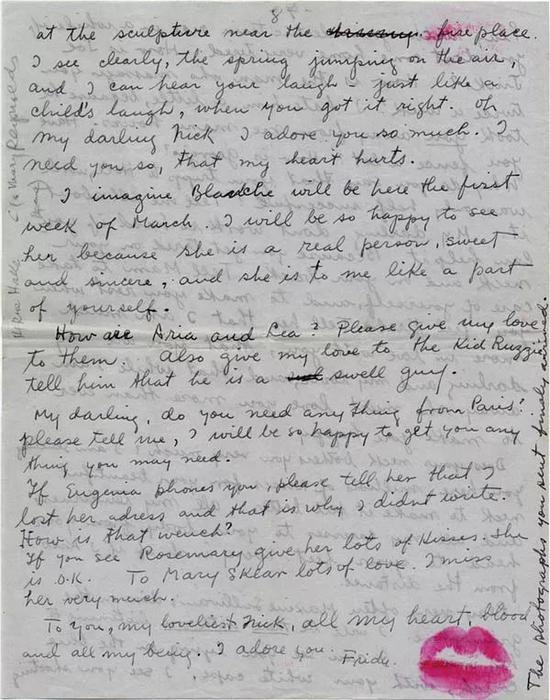 8
at the sculpture near the fire place.
I see clearly, the spring jumping on the air,
and I can hear your laugh – just like a
child's laugh, when you got it right. Oh
my darling Nick I adore you so much. I
need you so, that my heart hurts.
I imagine Blanche will be here the first
week of March. I will be so happy to see
her because she is a real person, sweet
and sincere, and she is to me like a part
of yourself.
How are Aria and Lea? Please give my love
to them. Also give my love to the Kid Ruzzie
tell him that he is a swell guy.
My darling, do you need any thing from Paris?
please tell me, I will be so happy to get you any
thing you may need.
If Eugenia phones you, please tell her that I
lost her adress and that is why I didnt write.
How is that wench?
If you see Rosemary give her lots of kisses. She
is O.K. To Mary Sklar lots of love. I miss
her very much.
To you, my loveliest Nick, all my heart, blood
and all my being. I adore you. Frida.
The photographs you sent finally arrived.
Mary Reynolds